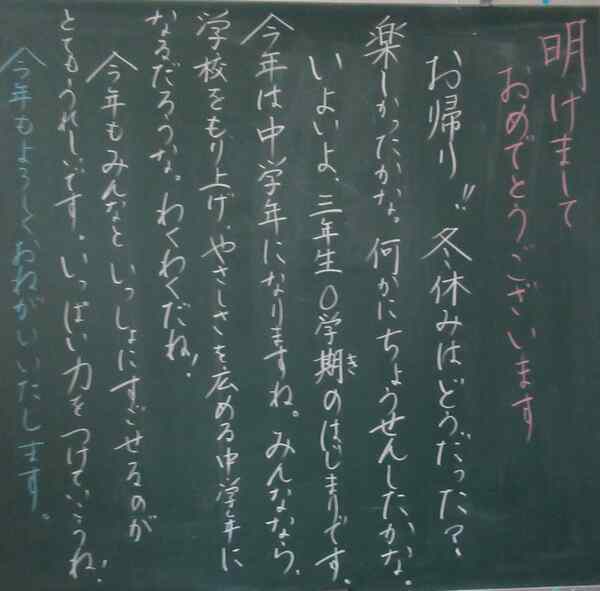 明けまして
おめでとうございます
お帰り!!冬休みはどうだった?
楽しかったかな。何かにちょうせんしたかな。
いよいよ、三年生0学期のはじまりです。
き
今年は中学年になりますね。みんななら、
学校をもり上げ、やさしさを広める中学年に
なるだろうな。わくわくだね!
今年もみんなといっしょにすごせるのが
とてもうれしいです。いっぱい力をつけていこうね!
今年もよろしくおねがいいたします。